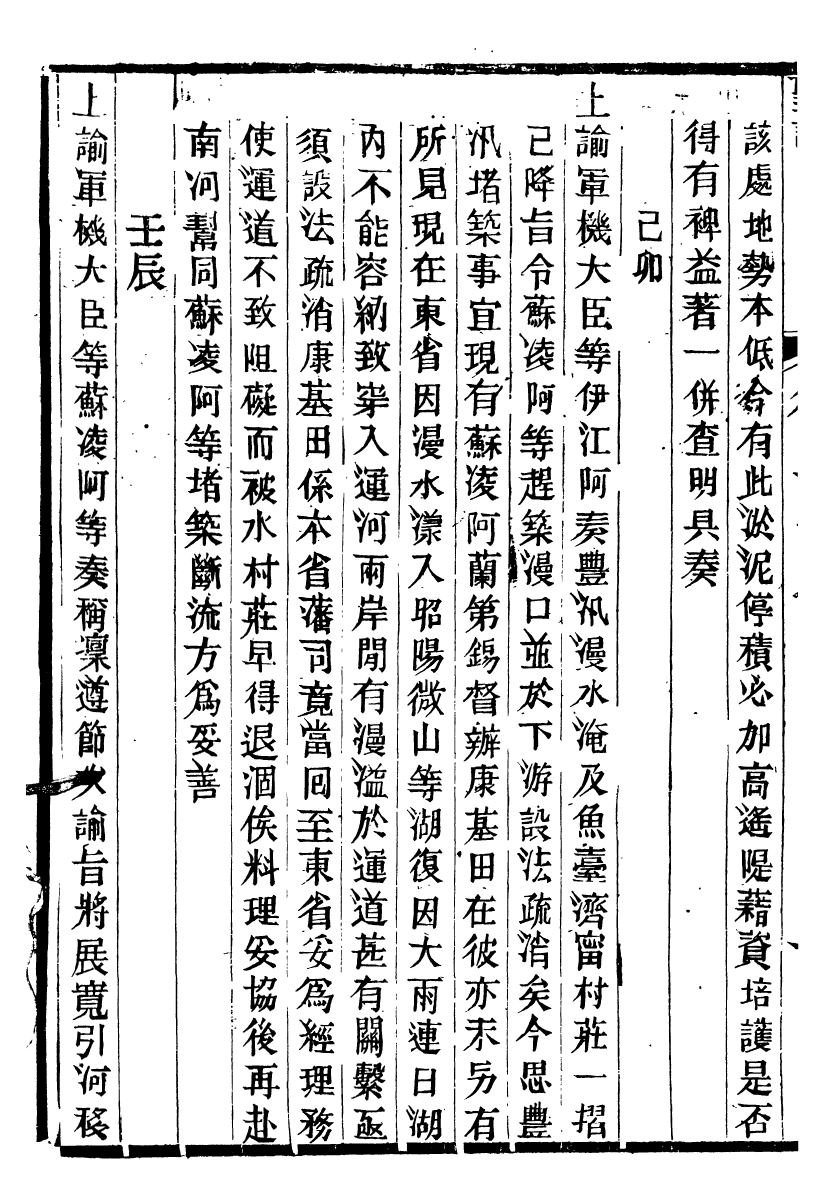 該處地勢本低今有此淤泥停積必加高遙隄藉資培護是否
得有裨益著一併查明具奏
己卯
上諭軍機大臣等伊江阿奏豐汛漫水淹及魚臺濟甯村莊一摺
已降旨令蘇凌阿等趕築漫口並於下游設法疏消矣今思豐
汛堵築事宜現有蘇凌阿蘭第錫督辦康基田在彼亦未另有
所見現在東省因漫水漾入昭陽微山等湖復因大雨連日湖
內不能容納致穿入運河兩岸閒有漫溢於運道甚有關繫亟
須設法疏消康基田係本省藩司竟當回至東省妥為經理務
使運道不致阻礙而被水村莊早得退涸俟料理妥協後再赴
南河幫同蘇凌阿等堵築斷流方爲妥善
壬辰
上諭軍機大臣等蘇凌阿等奏稱凜遵節次諭旨將展寬引河移